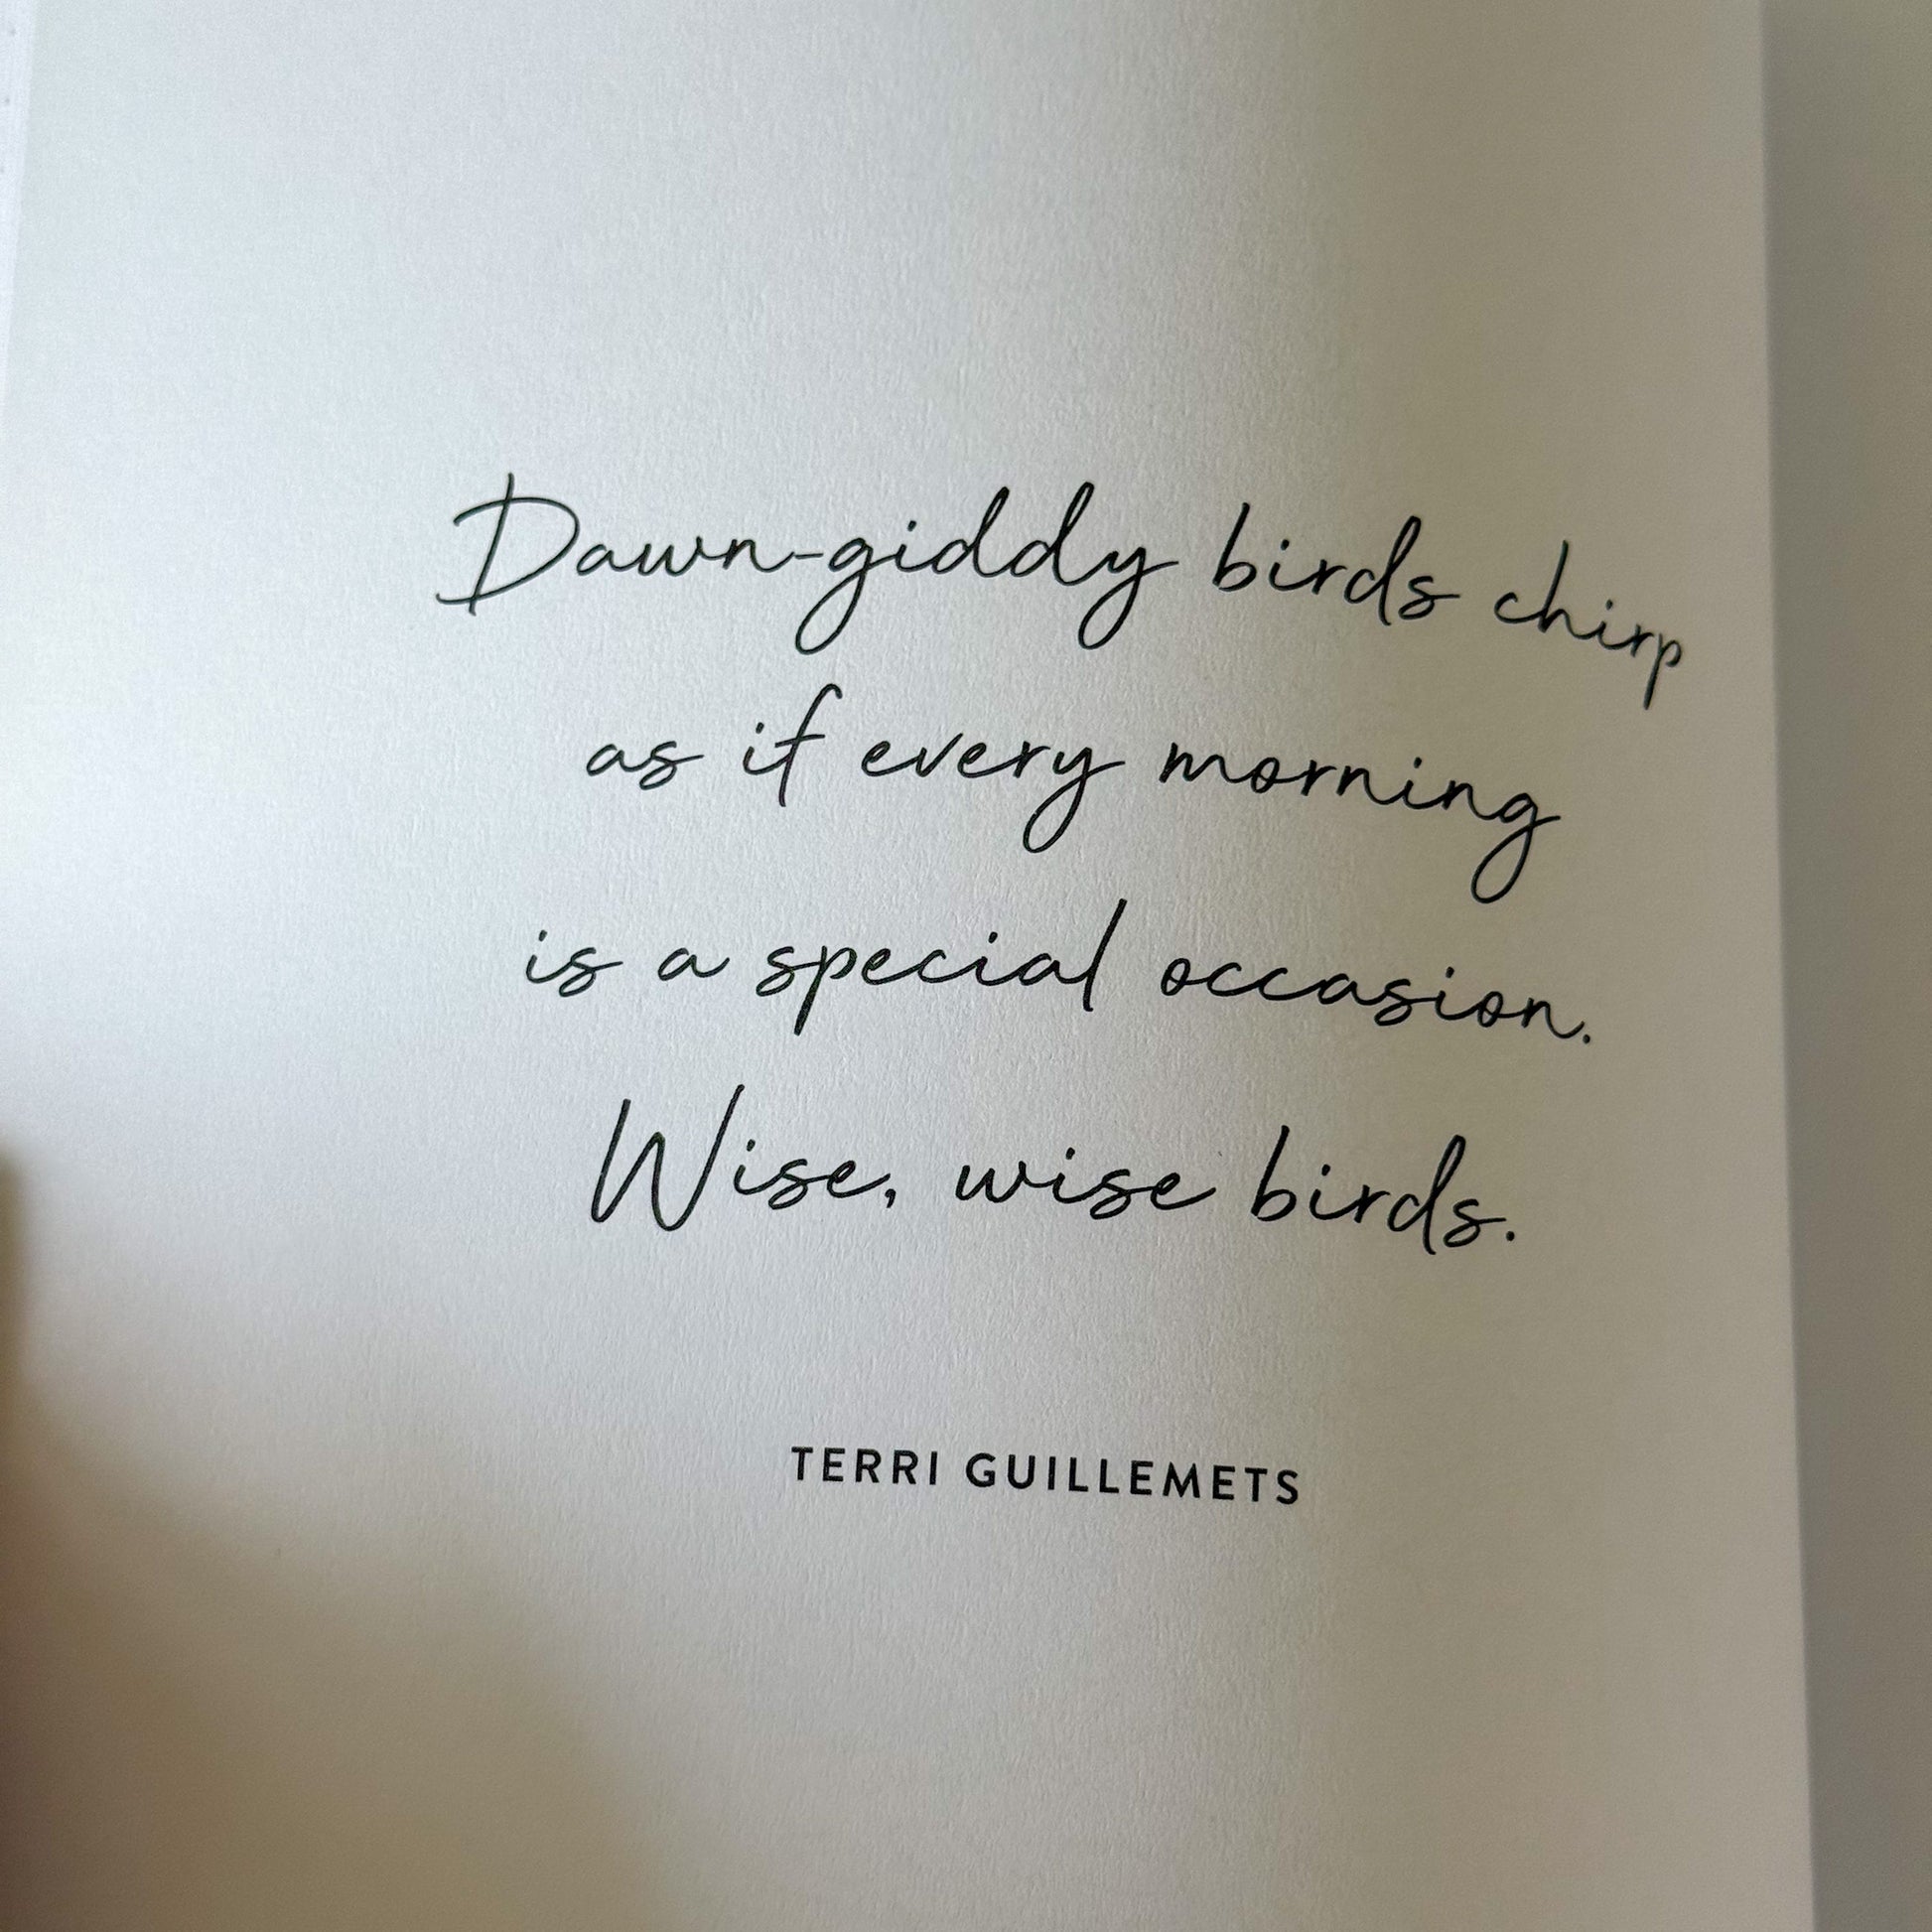 Dawn-giddy birds chirp
as if every morning
is a special occasion.
Wise, wise birds.
TERRI GUILLEMETS